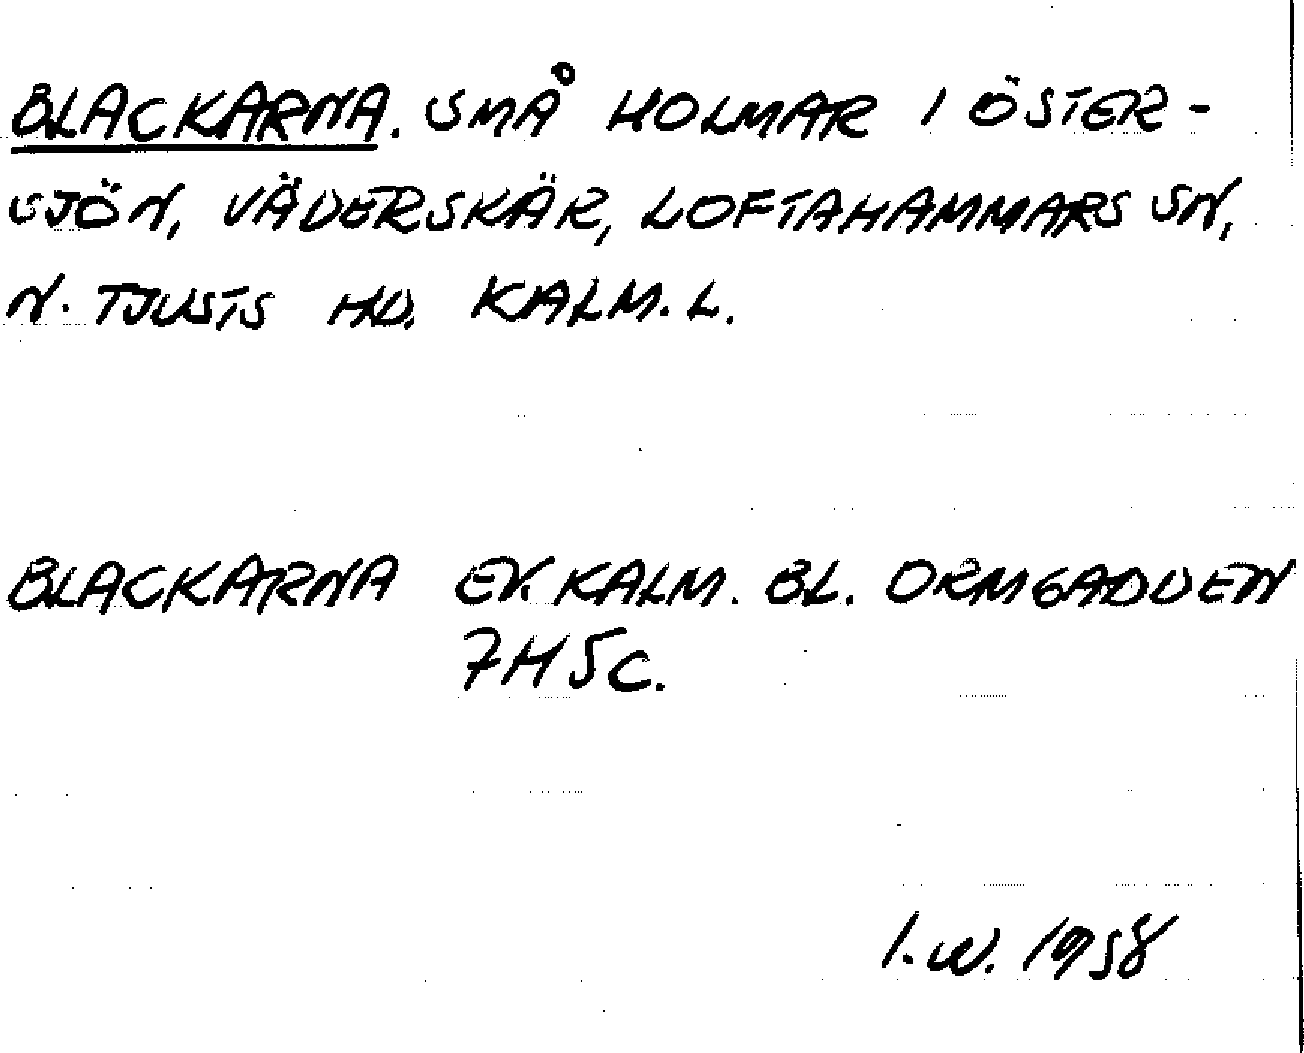 BLACKARNA. SMÅ HOLMAR I ÖSTER-
SJÖN, VÄDERSKÄR, LOFTAHAMMARS SN,
N. TJUSTS HD. KALM. L.
BLACKARNA EK. KALM. BL. ORMGADDEN
7H5C.
I.W. 1958